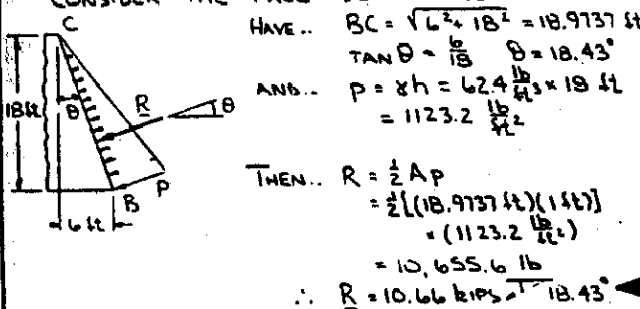 CONSIDER THE
C
HAVE.. BC = √6² + 18² = 18.9737 ft
TAN θ = 6/18 θ = 18.43°
AND.. p = γh = 62.4 lb/ft³ × 18 ft
= 1123.2 lb/ft²
18 ft
θ
R
θ
THEN.. R = ½ Ap
= ½[(18.9737 ft)(1 ft)]
× (1123.2 lb/ft²)
B
P
6 ft
= 10,655.6 lb
∴ R = 10.66 kips 18.43°